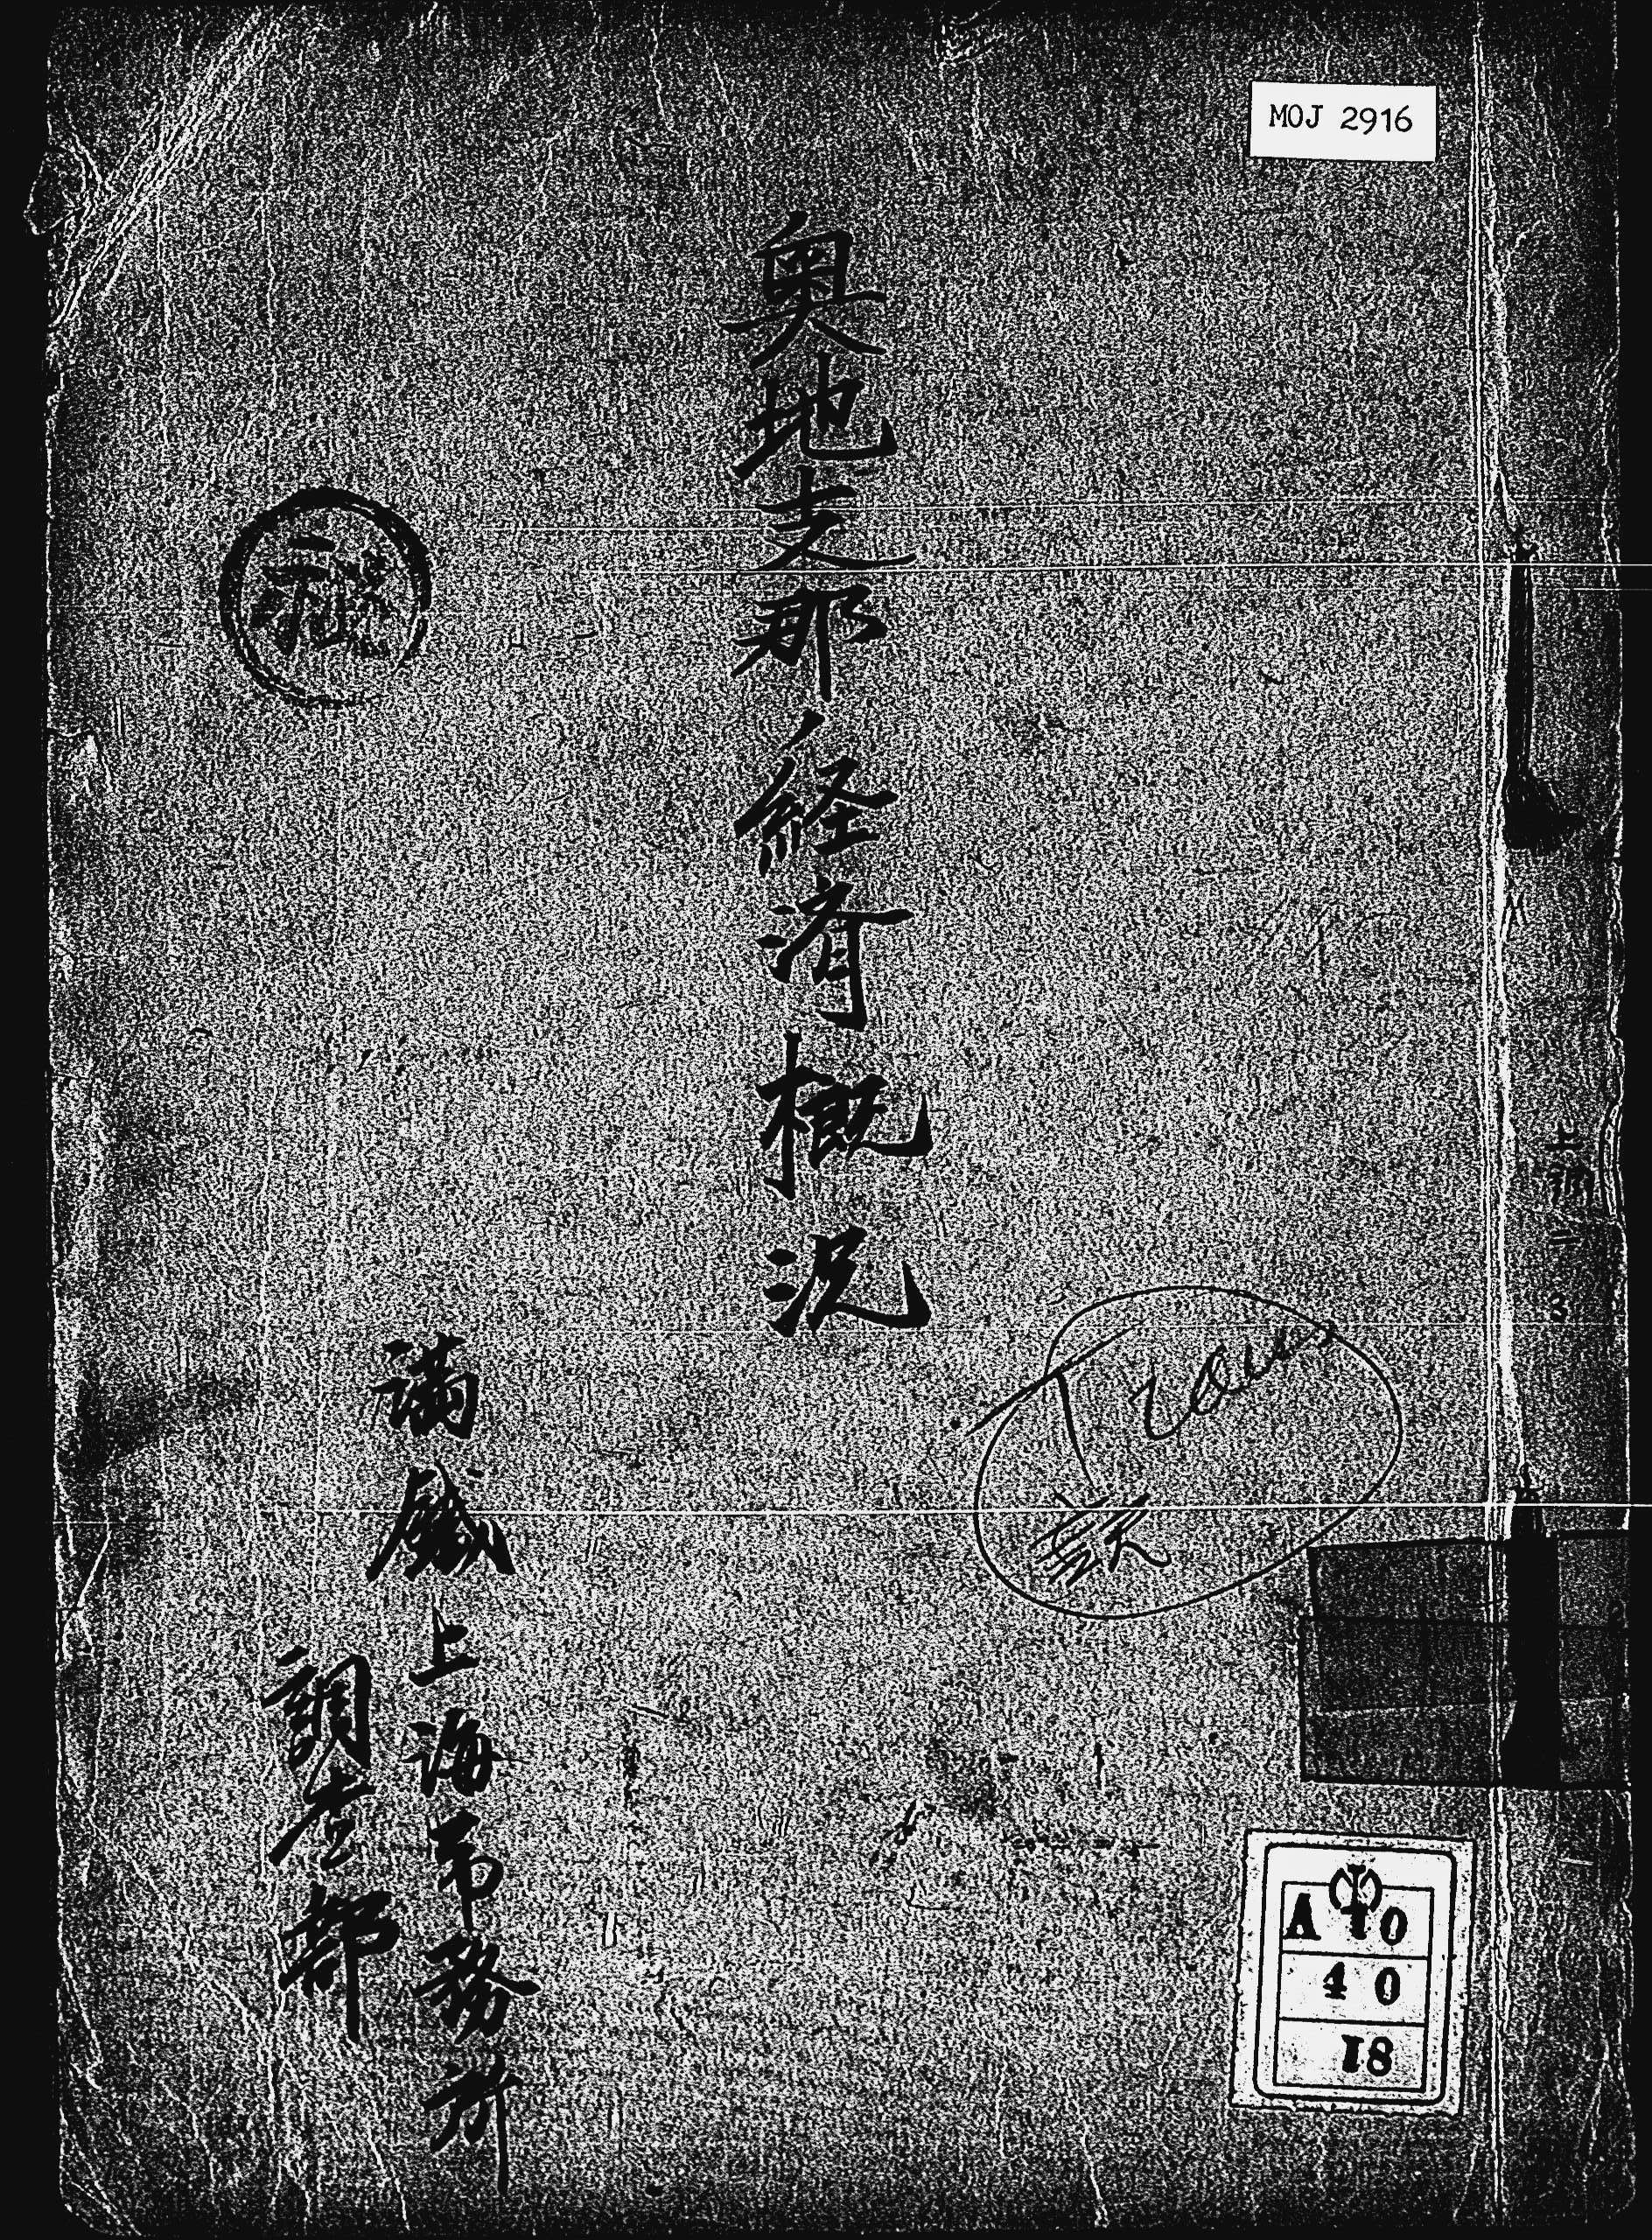 MOJ 2916
奥地支那経済概況
秘
満鐵上海事務所
調査部
Trans
A 10
4 0
18